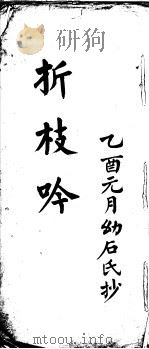 研狗
折枝吟
乙酉元月幼石氏抄
mtoou.info